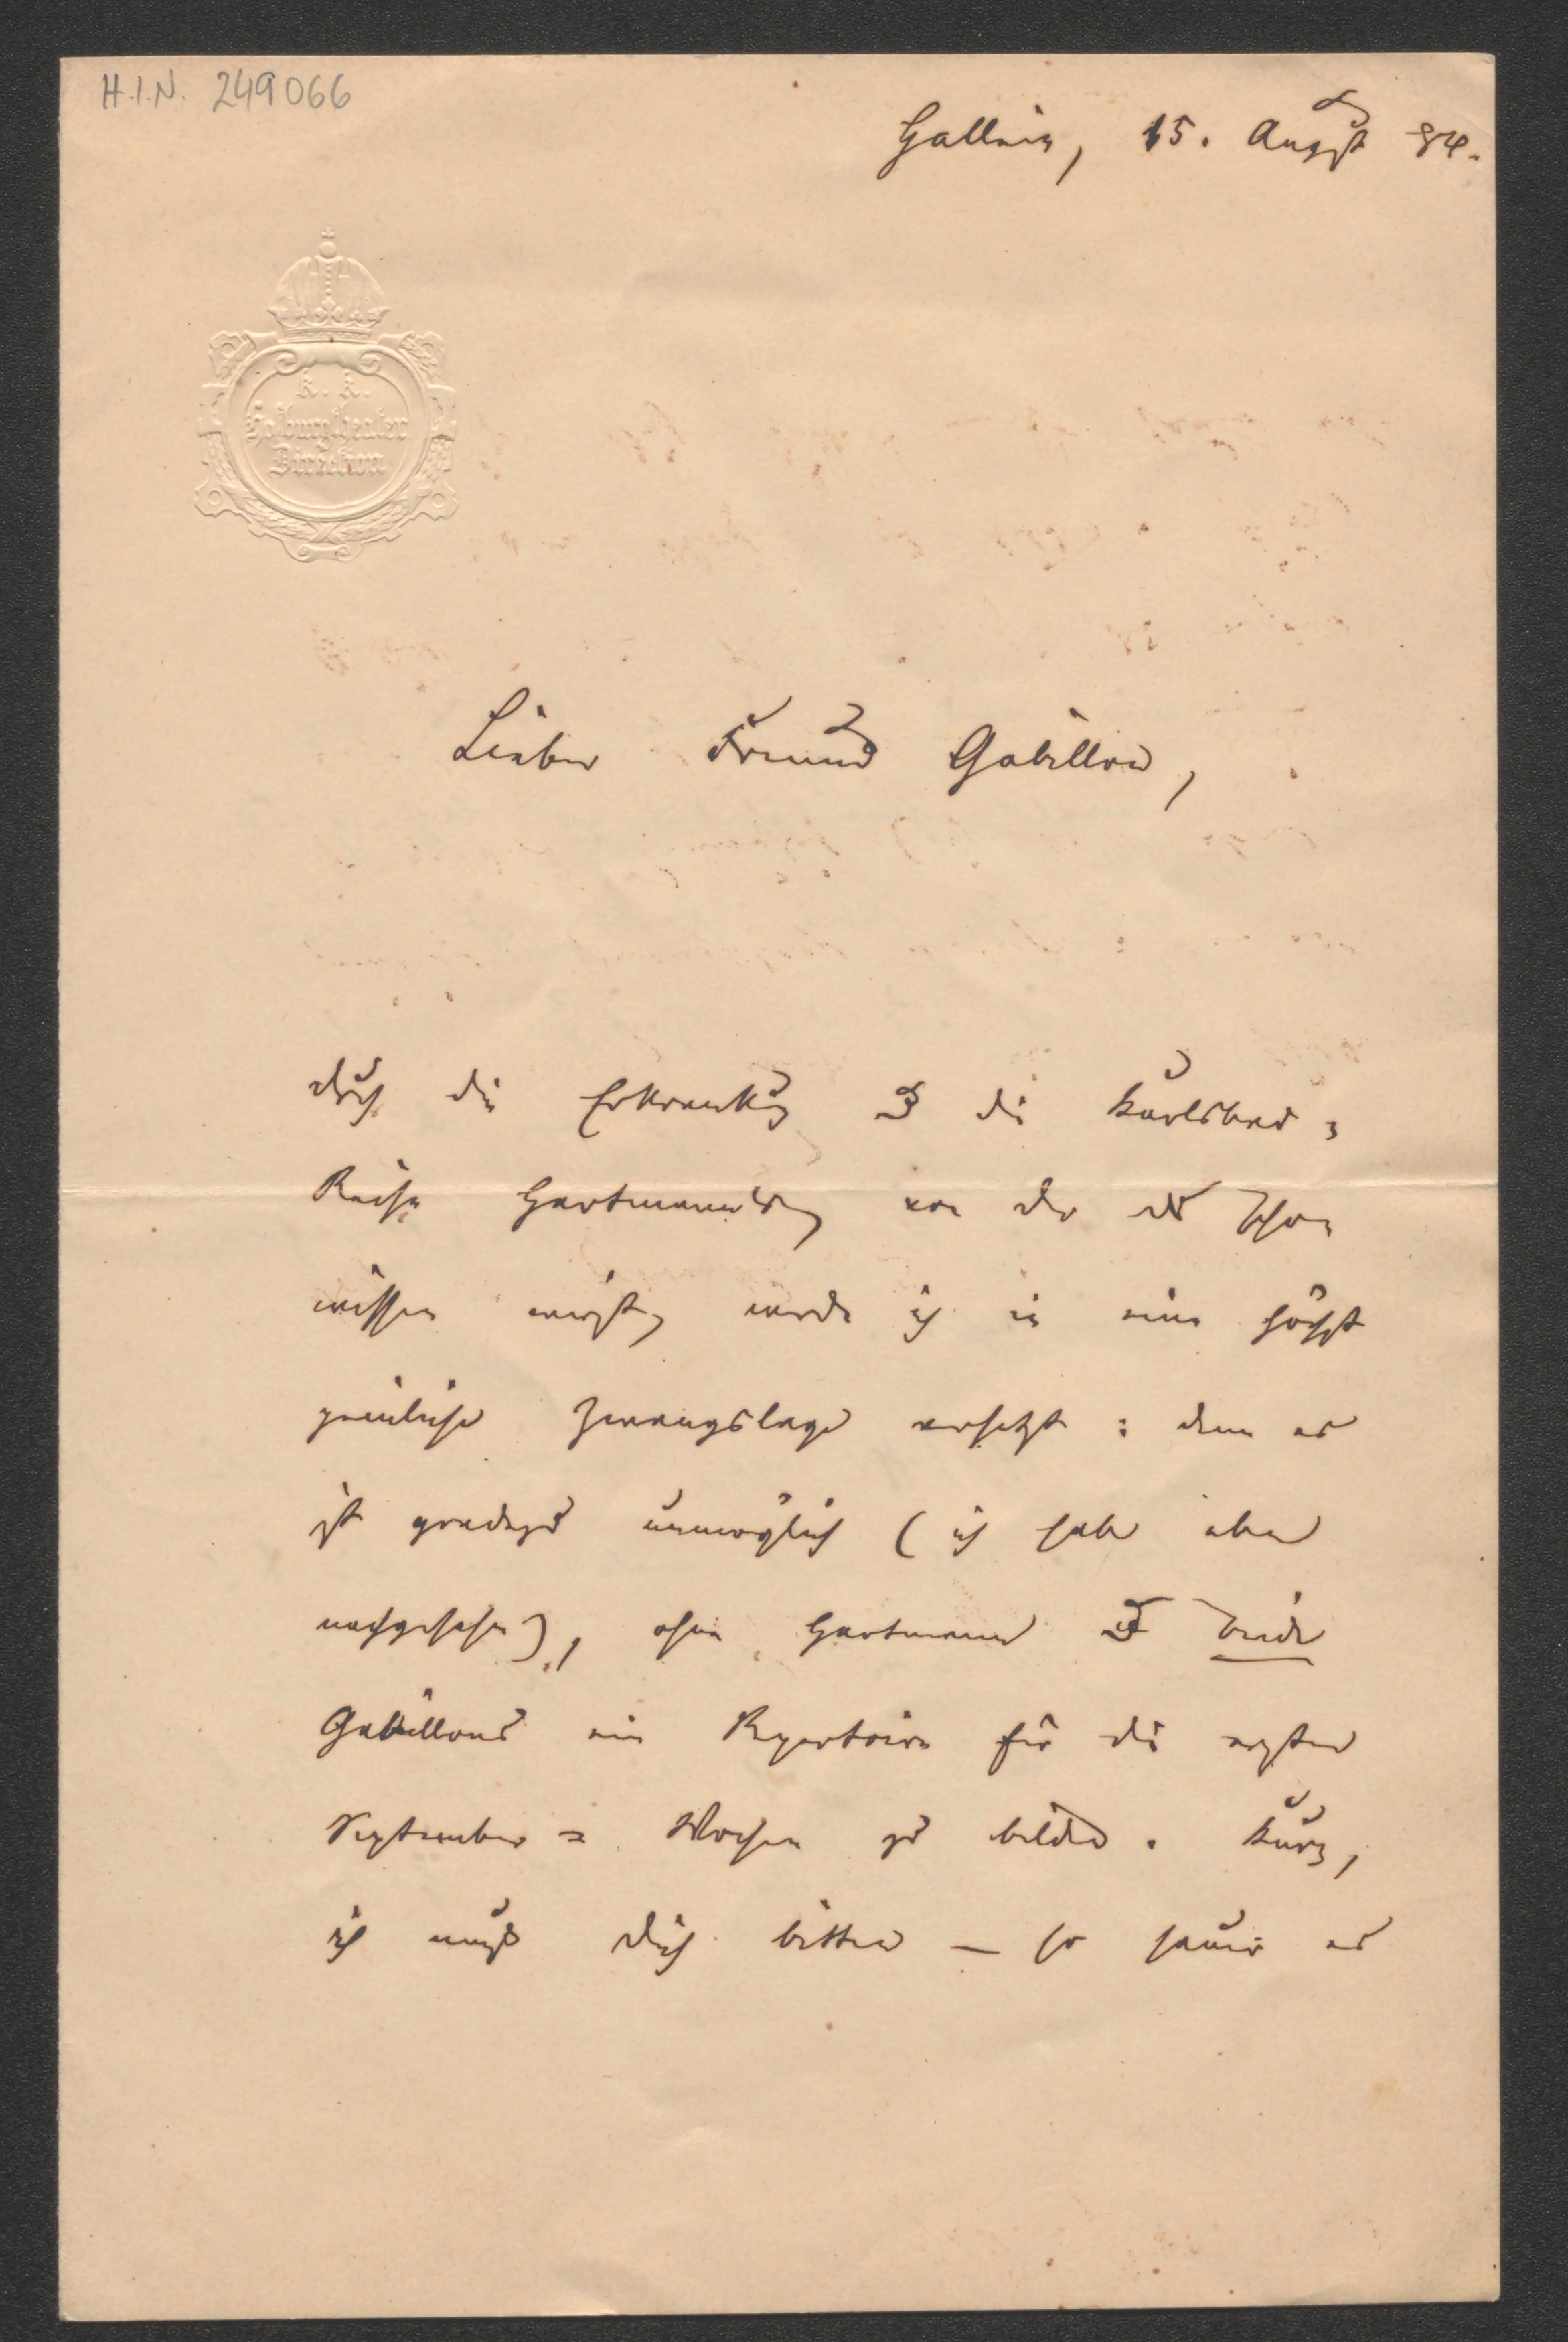 H.I.N. 249066
Hallein, 15. August 84.
k. k.
Hofburgtheater
Direktion
Lieber Freund Gabillon,
durch die Erkrankung u die Karlsbad-
Reise Hartmanns, von der du schon
wissen wirst, werde ich in eine höchst
peinliche Zwangslage versetzt: denn es
ist gradezu unmöglich (ich habe eben
nachgesehen), ohne Hartmann u beide
Gabillons ein Repertoire für die ersten
September-Wochen zu bilden. Kurz,
ich muß dich bitten – so sauer es